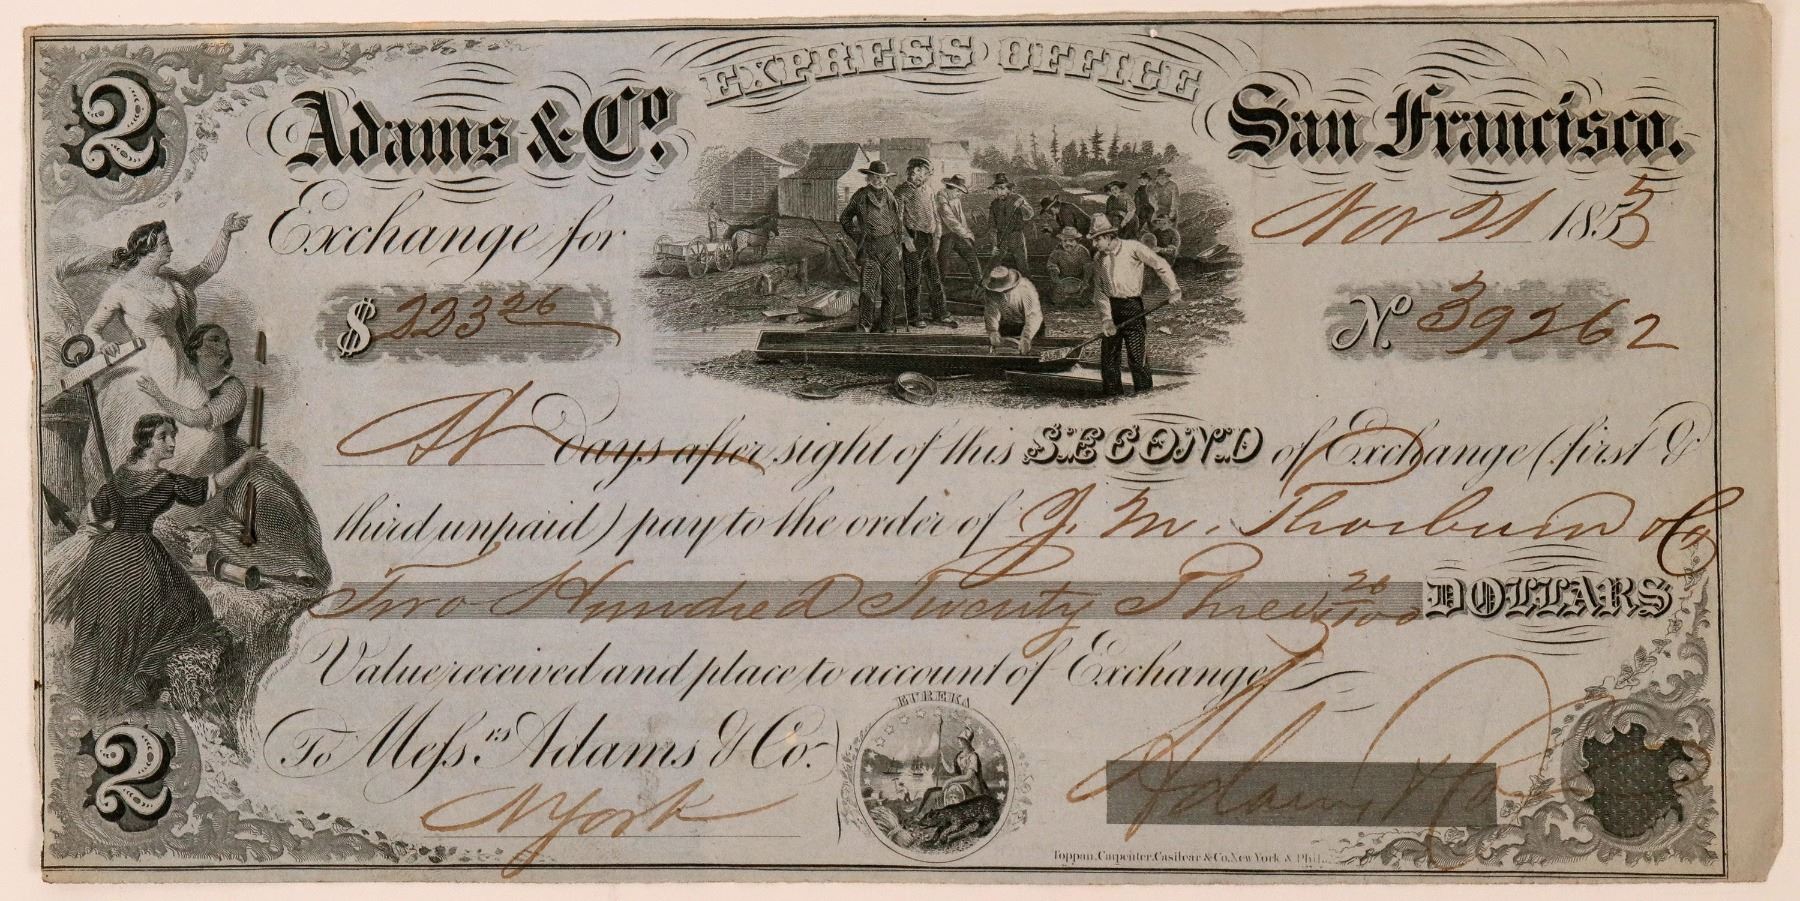 EXPRESS OFFICE
2 Adams & Co. San Francisco.
Exchange for Nov 21 1853
$ 223 26 No. 39262
At days after sight of this SECOND of Exchange (first &
third unpaid) pay to the order of J. M. Thorburn & Co
Two Hundred Twenty Three 26/100 DOLLARS
Value received and place to account of Exchange
2 To Messrs Adams & Co.
EUREKA
N York
Adams & Co
Toppan, Carpenter, Casilear & Co. New York & Phil.